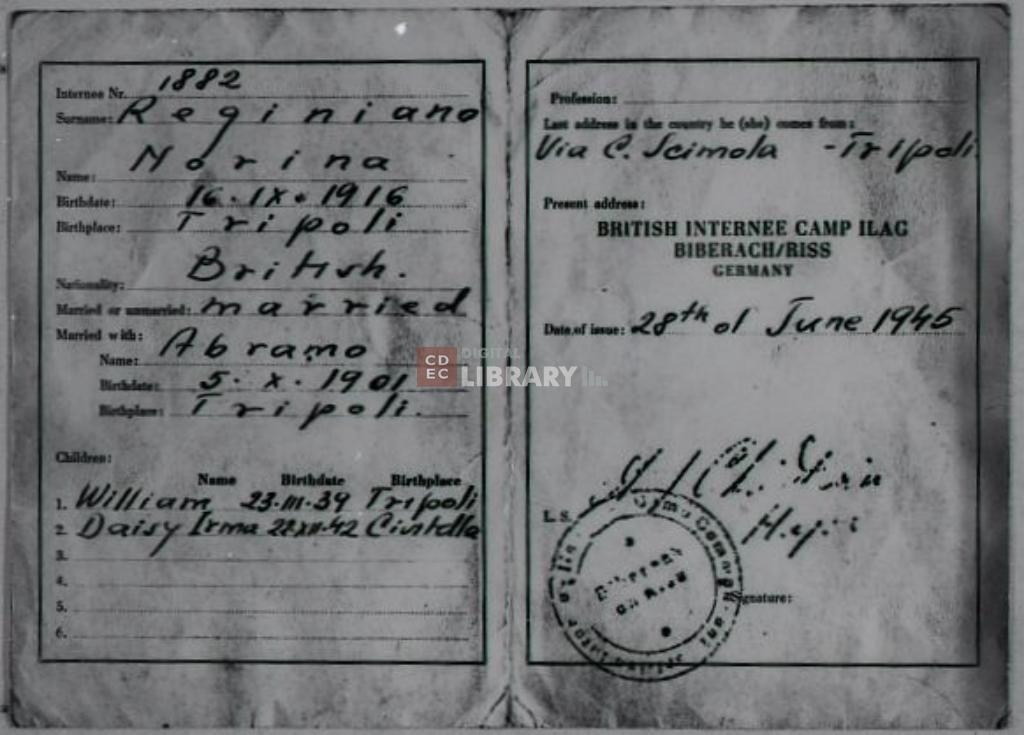 Internee Nr. 1882
Surname: Reginiano
Name: Norina
Birthdate: 16.IX.1916
Birthplace: Tripoli
Nationality: British.
Married or unmarried: married
Married with:
Name: Abramo
Birthdate: 5.X.1901
Birthplace: Tripoli.
Children:
Name Birthdate Birthplace
1. William 23.III.39 Tripoli
2. Daisy Irma 22.XII.42
3.
4.
5.
6.
Profession:
Last address in the country he (she) comes from:
Via C. Scimola - Tripoli
Present address:
BRITISH INTERNEE CAMP ILAG
BIBERACH/RISS
GERMANY
Date of issue: 28th of June 1945
L. S.
Signature:
CDEC DIGITAL LIBRARY